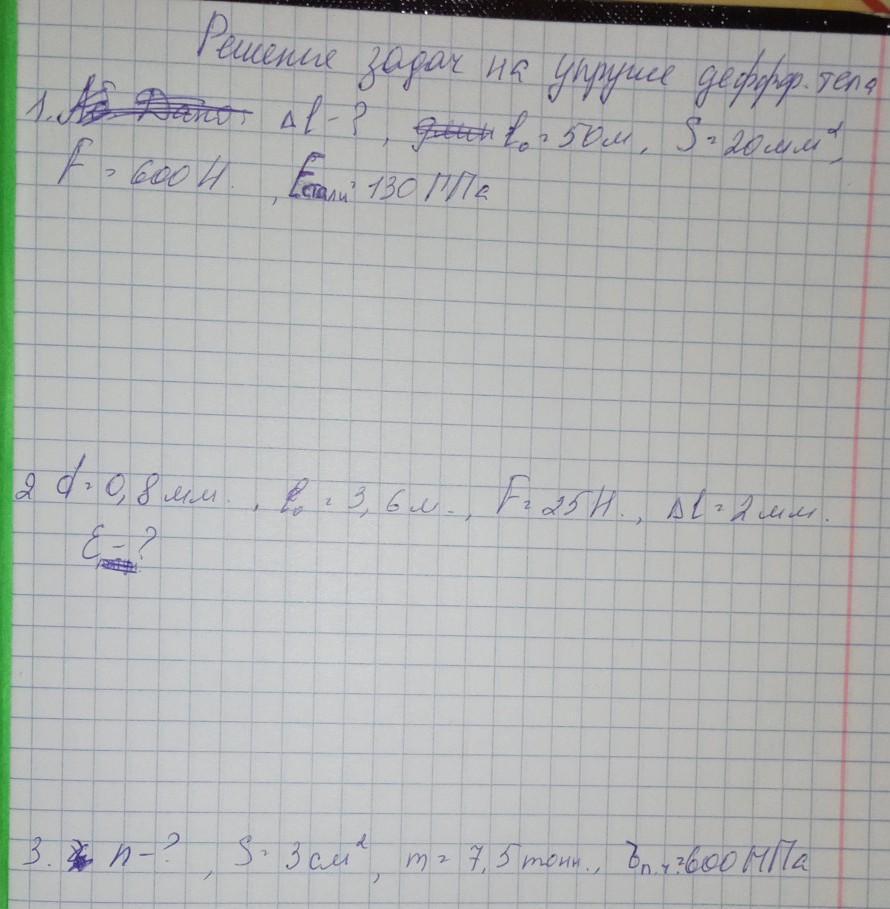 Решение задач на упругие дефффр. тела
1. Δl - ?, l₀ = 50м, S = 20мм²,
F = 600 Н., Eстали = 130 ГПа
2 d = 0,8 мм., l₀ = 3,6 м., F = 25 Н., Δl = 2 мм.
E - ?
3. n - ?, S = 3 см², m = 7,5 тонн., σп.ч = 600 МПа